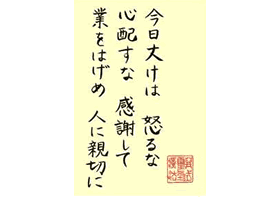 今日丈けは 怒るな
心配すな 感謝して
業をはげめ 人に親切に